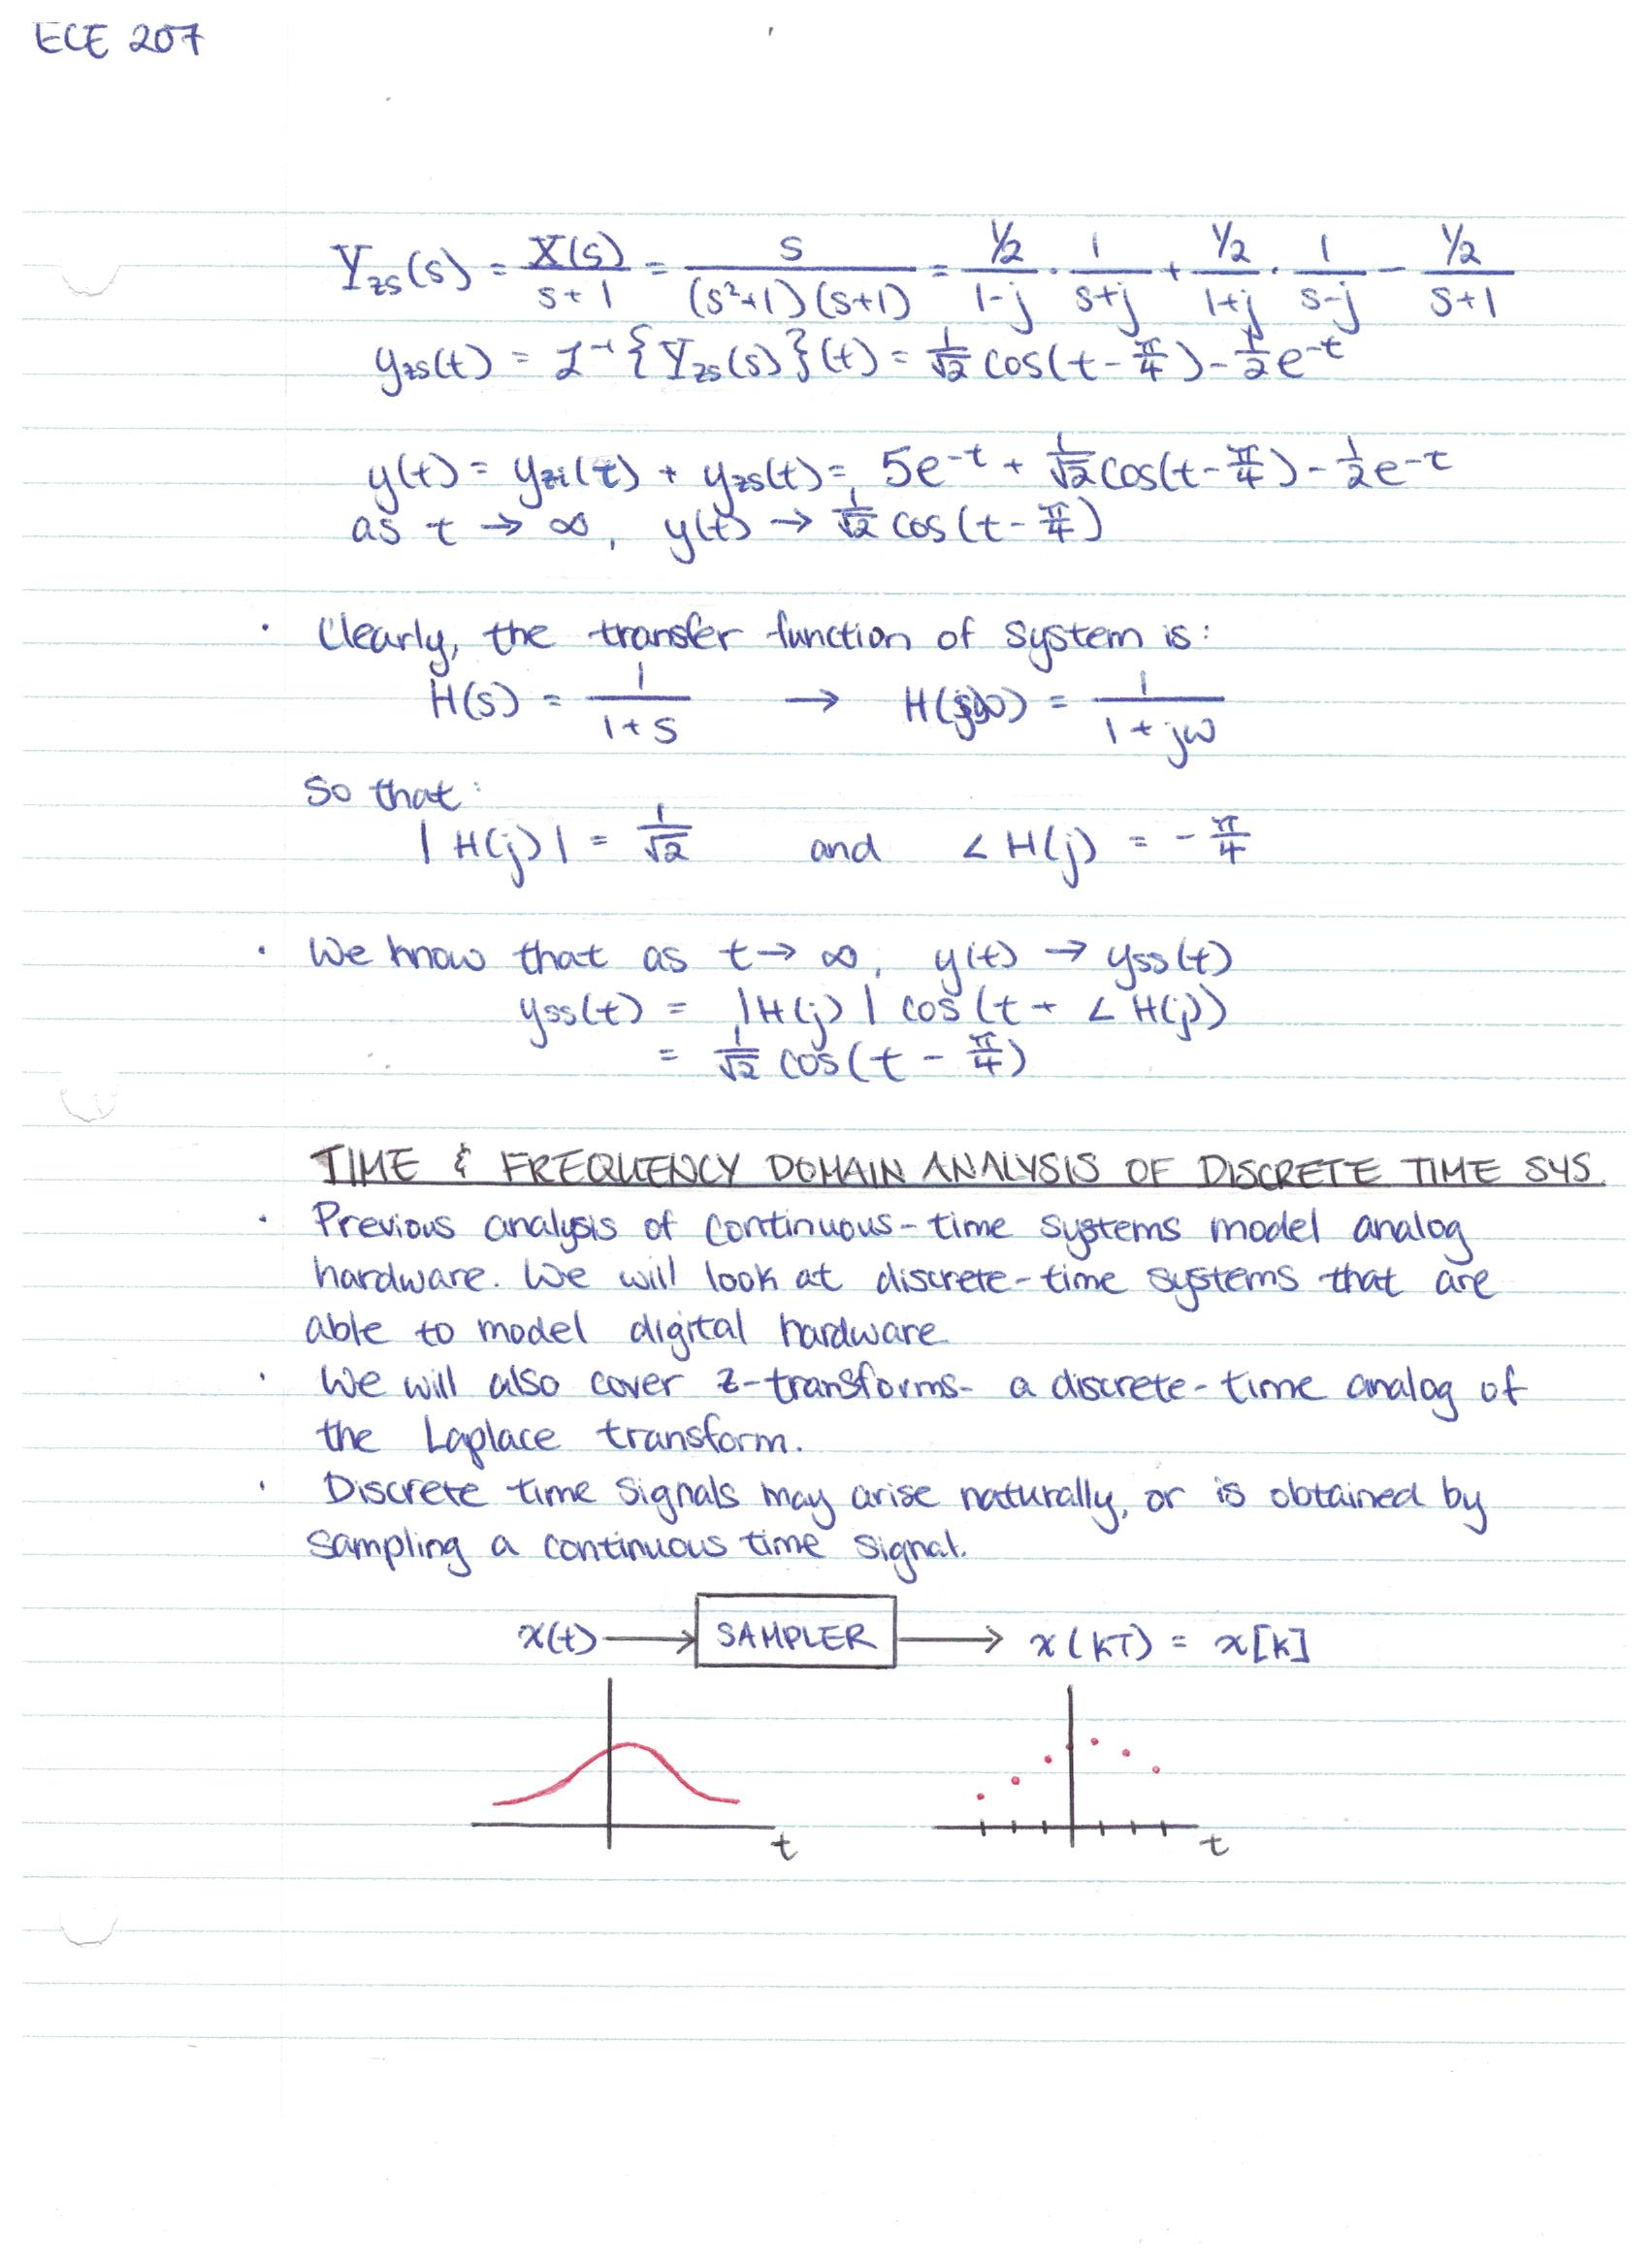 ECE 207
Y_zs(s) = X(s)/(s+1) = s/((s²+1)(s+1)) = (1/2)/(1-j) · 1/(s+j) + (1/2)/(1+j) · 1/(s-j) - (1/2)/(s+1)
y_zs(t) = ℒ⁻¹{Y_zs(s)}(t) = 1/√2 cos(t-π/4) - 1/2 e^-t
y(t) = y_zi(t) + y_zs(t) = 5e^-t + 1/√2 cos(t-π/4) - 1/2 e^-t
as t → ∞, y(t) → 1/√2 cos(t-π/4)
· Clearly, the transfer function of system is:
H(s) = 1/(1+s) → H(jω) = 1/(1+jω)
So that:
|H(j)| = 1/√2 and ∠H(j) = -π/4
· We know that as t→ ∞, y(t) → y_ss(t)
y_ss(t) = |H(j)| cos(t + ∠H(j))
= 1/√2 cos(t - π/4)
TIME & FREQUENCY DOMAIN ANALYSIS OF DISCRETE TIME SYS.
· Previous analysis of continuous-time systems model analog
hardware. We will look at discrete-time systems that are
able to model digital hardware
· We will also cover z-transforms- a discrete-time analog of
the Laplace transform.
· Discrete time signals may arise naturally, or is obtained by
sampling a continuous time signal.
x(t) → SAMPLER → x(kT) = x[k]
t t